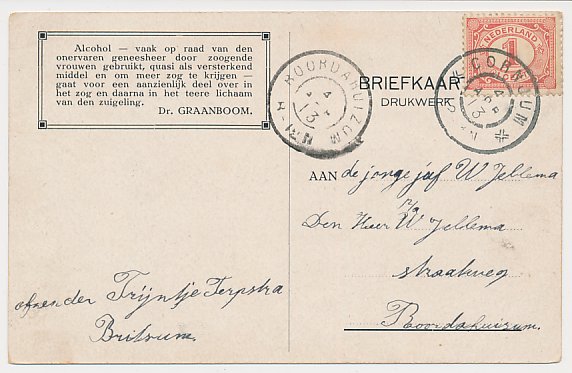 Alcohol — vaak op raad van den
onervaren geneesheer door zoogende
vrouwen gebruikt, quasi als versterkend
middel en om meer zog te krijgen —
gaat voor een aanzienlijk deel over in
het zog en daarna in het teere lichaam
van den zuigeling.
Dr. GRAANBOOM.
ROORDAHUIZUM
4
13
BRIEFKAART
DRUKWERK
NEDERLAND
1
CORNJUM
4
13
AAN de jonge juf W Jellema
p/a
Den Heer W Jellema
straatweg
Roordahuizum.
afzender Trijntje Terpstra
Britsum.